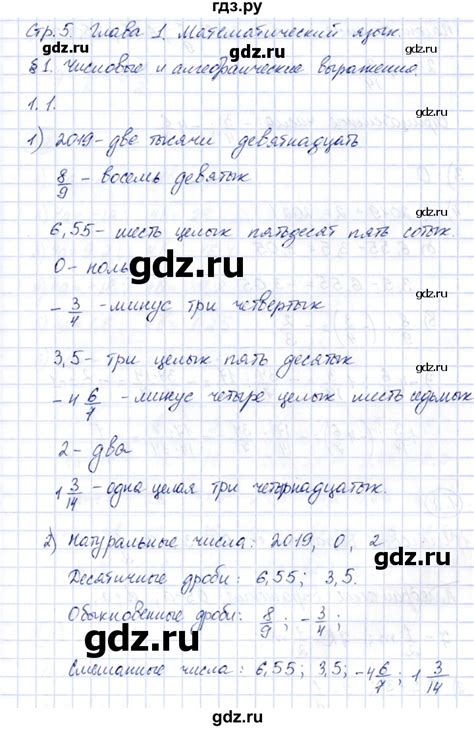 гдз.ру
Стр. 5. Глава 1. Математический язык.
§ 1. Числовые и алгебраические выражения.
1.1.
1) 2019 - две тысячи девятнадцать
8/9 - восемь девятых
6,55 - шесть целых пятьдесят пять сотых
0 - ноль
gdz.ru
- 3/4 - минус три четвертых
3,5 - три целых пять десятых
gdz.ru
- 4 6/7 - минус четыре целых шесть седьмых
2 - два
gdz.ru
1 3/14 - одна целая три четырнадцатых.
2) Натуральные числа: 2019, 0, 2
gdz.ru
Десятичные дроби: 6,55; 3,5.
Обыкновенные дроби: 8/9; - 3/4;
gdz.ru
Смешанные числа: 6,55; 3,5; - 4 6/7; 1 3/14